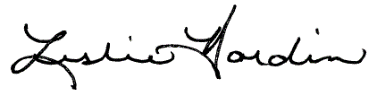 Leslie Hardin